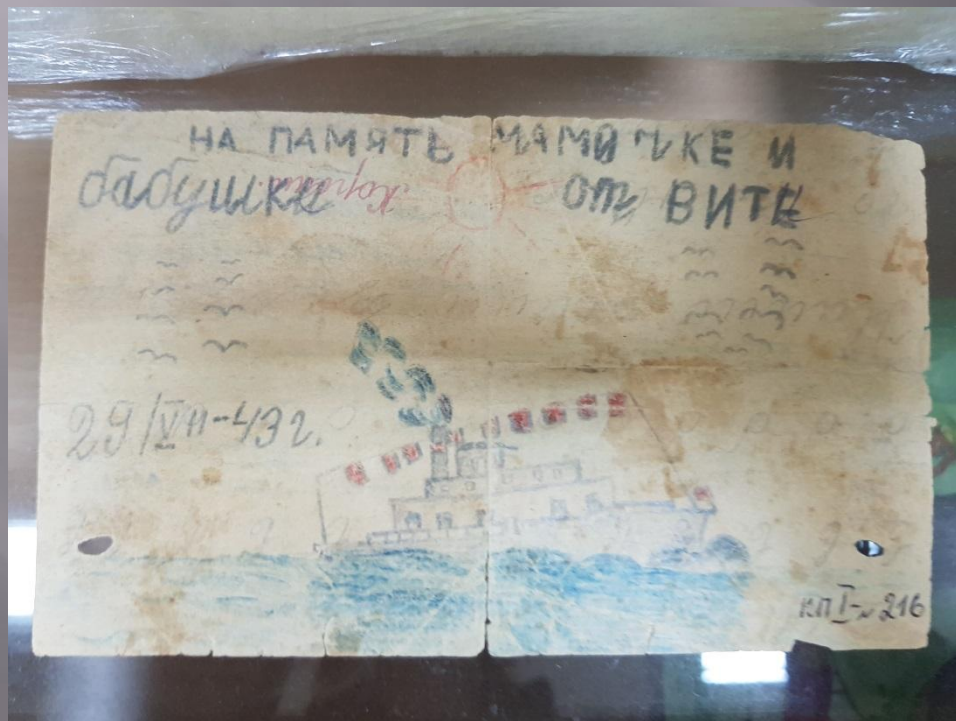 НА ПАМЯТЬ МАМОЧКЕ И
бабушке от ВИТЕ
29/VII-43 г.
КП I-№216